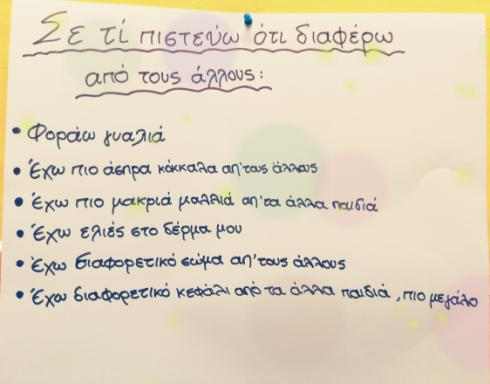 Σε τί πιστεύω ότι διαφέρω
από τους άλλους:
• Φοράω γυαλιά
• Έχω πιο άσπρα κόκκαλα απ' τους άλλους
• Έχω πιο μακριά μαλλιά απ' τα άλλα παιδιά
• Έχω ελιές στο δέρμα μου
• Έχω διαφορετικό σώμα απ' τους άλλους
• Έχω διαφορετικό κεφάλι από τα άλλα παιδιά, πιο μεγάλο